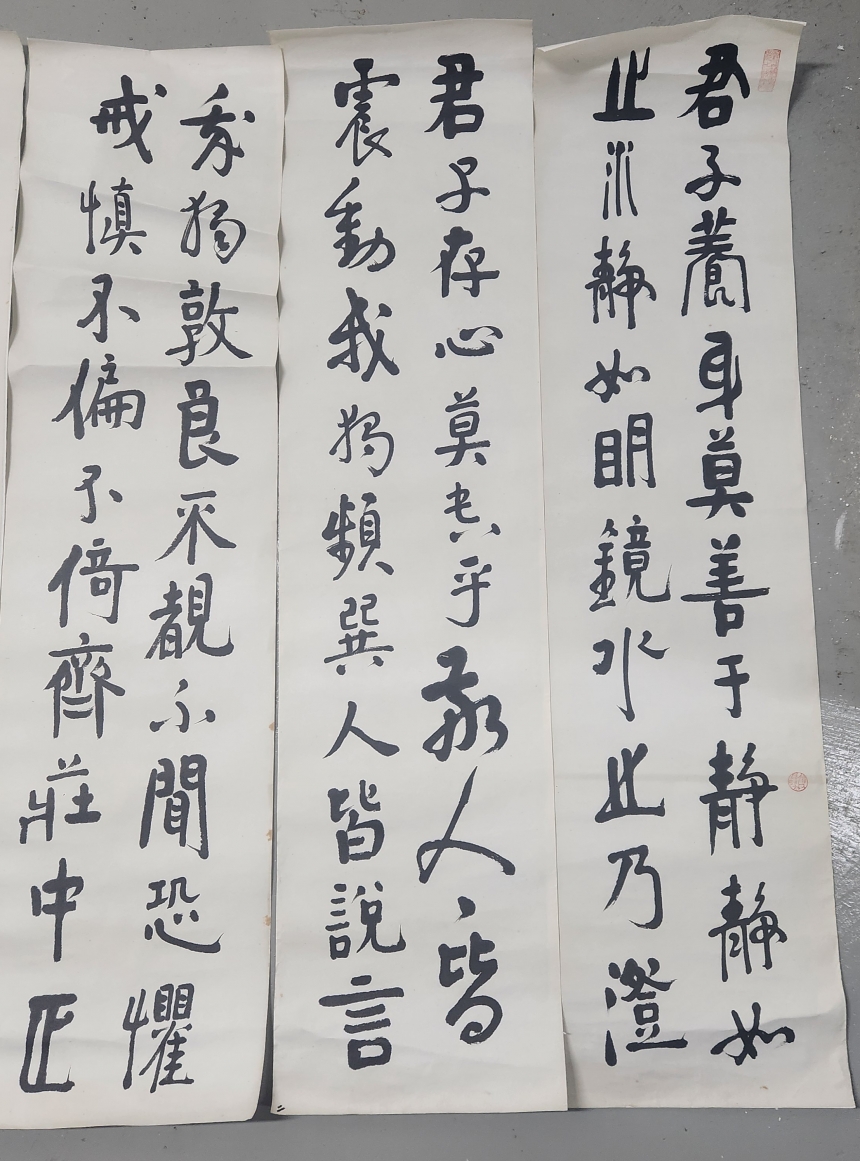 君子養身莫善于靜靜如
止水靜如明鏡水止乃澄
君子存心莫乎敬人〻皆
震動我獨頻巽人皆說言
我獨敦艮不覩不聞恐懼
戒慎不偏不倚齊莊中正